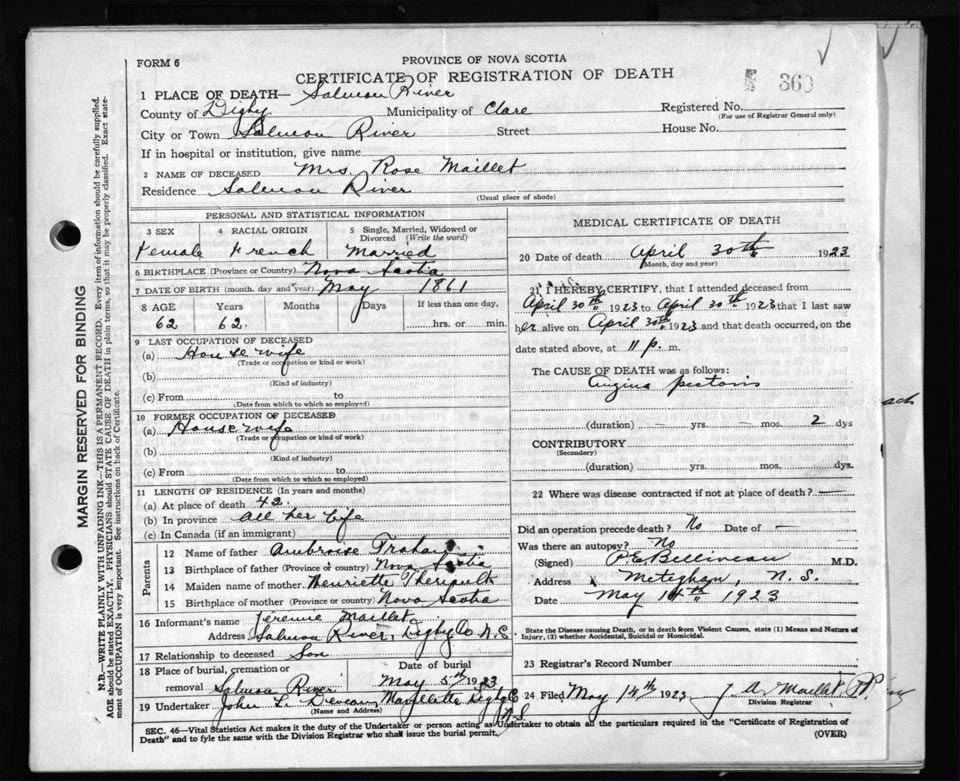 FORM 6
PROVINCE OF NOVA SCOTIA
CERTIFICATE OF REGISTRATION OF DEATH
360
1 PLACE OF DEATH— Salmon River
County of Digby Municipality of Clare Registered No.
(For use of Registrar General only)
City or Town Salmon River Street House No.
If in hospital or institution, give name
2 NAME OF DECEASED Mrs. Rose Maillet
Residence Salmon River
(Usual place of abode)
PERSONAL AND STATISTICAL INFORMATION
3 SEX 4 RACIAL ORIGIN 5 Single, Married, Widowed or Divorced (Write the word)
Female French Married
6 BIRTHPLACE (Province or Country) Nova Scotia
7 DATE OF BIRTH (month, day and year) May 1861
8 AGE Years Months Days If less than one day,
62 62. hrs. or min.
9 LAST OCCUPATION OF DECEASED
(a) Housewife
(Trade or occupation or kind of work)
(b)
(Kind of industry)
(c) From to
(Date from which to which so employed)
10 FORMER OCCUPATION OF DECEASED
(a) Housewife
(Trade or occupation or kind of work)
(b)
(Kind of industry)
(c) From to
(Date from which to which so employed)
11 LENGTH OF RESIDENCE (In years and months)
(a) At place of death 42.
(b) In province all her life
(c) In Canada (if an immigrant)
Parents
12 Name of father Ambroise Trahan
13 Birthplace of father (Province or country) Nova Scotia
14 Maiden name of mother Henriette Theriault
15 Birthplace of mother (Province or country) Nova Scotia
16 Informant's name Jeremie Maillet
Address Salmon River, Digby Co N.S.
17 Relationship to deceased Son
18 Place of burial, cremation or removal Salmon River Date of burial May 5th 1923
19 Undertaker John L. Deveau Mavillette Digby Co
N.S.
(Name and Address)
MEDICAL CERTIFICATE OF DEATH
20 Date of death April 30th 1923
(Month, day and year)
21 I HEREBY CERTIFY, that I attended deceased from
April 30th 1923 to April 30th 1923 that I last saw
her alive on April 30th 1923 and that death occurred, on the
date stated above, at 11 p. m.
The CAUSE OF DEATH was as follows:
Angina pectoris
(duration) — yrs. — mos. 2 dys
CONTRIBUTORY
(Secondary)
(duration) yrs. mos. dys.
22 Where was disease contracted if not at place of death? —
Did an operation precede death? No Date of —
Was there an autopsy? No
(Signed) P.E. Belliveau M.D.
Address Meteghan, N.S.
Date May 14th 1923
State the Disease causing Death, or in death from Violent Causes, state (1) Means and Nature of
Injury, (3) whether Accidental, Suicidal or Homicidal.
23 Registrar's Record Number
24 Filed May 14th 1923 J. A. Maillet
Division Registrar
SEC. 46—Vital Statistics Act makes it the duty of the Undertaker or person acting as Undertaker to obtain all the particulars required in the "Certificate of Registration of
Death" and to fyle the same with the Division Registrar who shall issue the burial permit.
(OVER)
MARGIN RESERVED FOR BINDING
N.B.—WRITE PLAINLY WITH UNFADING INK—THIS IS A PERMANENT RECORD. Every item of information should be carefully supplied.
AGE should be stated EXACTLY. PHYSICIANS should STATE CAUSE OF DEATH in plain terms, so that it may be properly classified. Exact statement of OCCUPATION is very important. See instructions on back of Certificate.